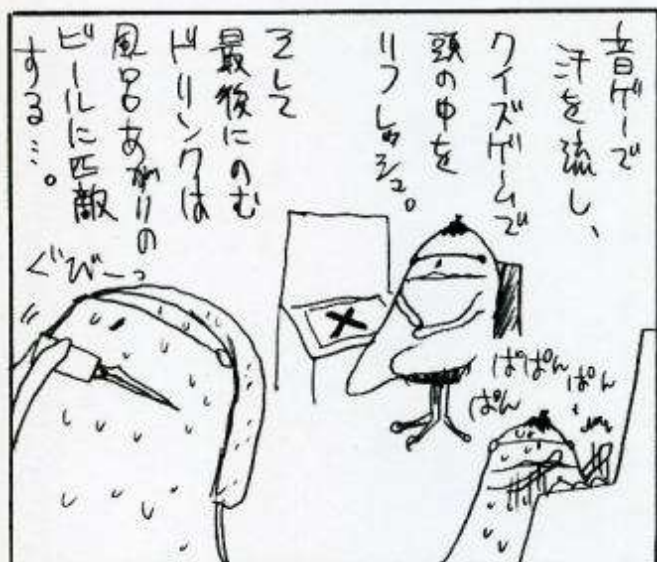 音ゲーで
汗を流し、
クイズゲームで
頭の中を
リフレッシュ。
そして
最後にのむ
ドリンクは
風呂あがりの
ビールに匹敵
する…。
ぐびーっ
ぱぱん
ぱん
ぱん